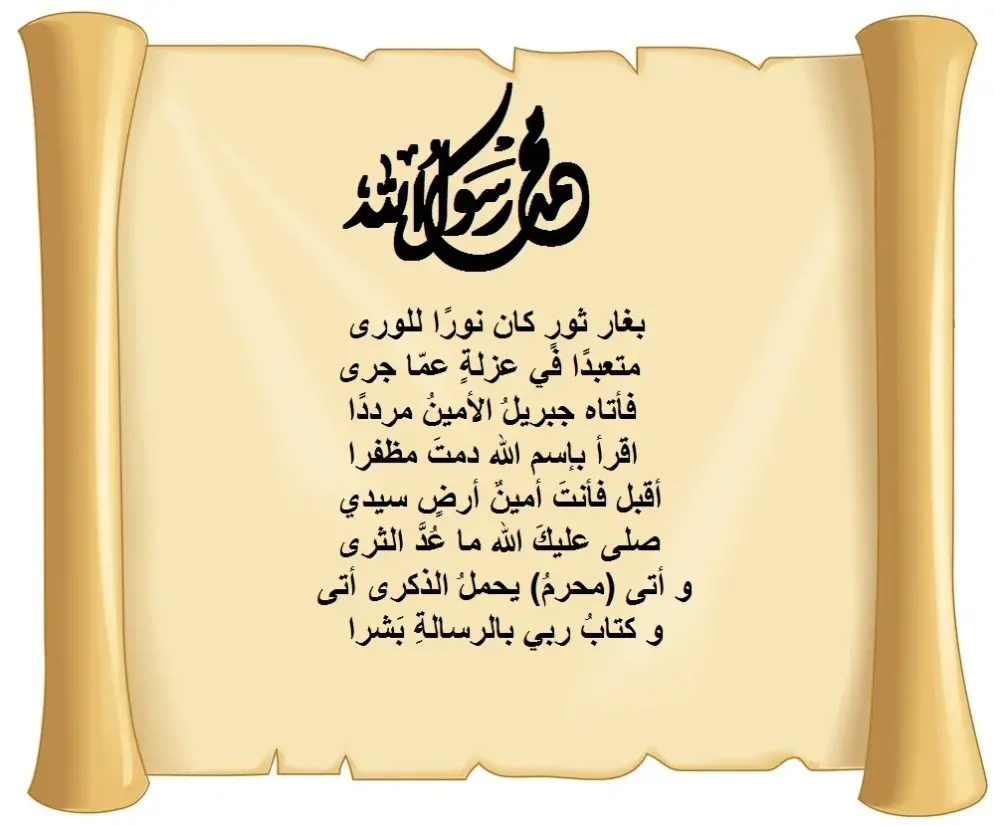 محمد رسول الله
بغار ثورٍ كان نورًا للورى
متعبدًا في عزلةٍ عمّا جرى
فأتاه جبريلُ الأمينُ مرددًا
اقرأ بإسم الله دمتَ مظفرا
أقبل فأنتَ أمينٌ أرضٍ سيدي
صلى عليكَ الله ما عُدَّ الثرى
و أتى (محرمُ) يحملُ الذكرى أتى
و كتابُ ربي بالرسالةِ بَشرا